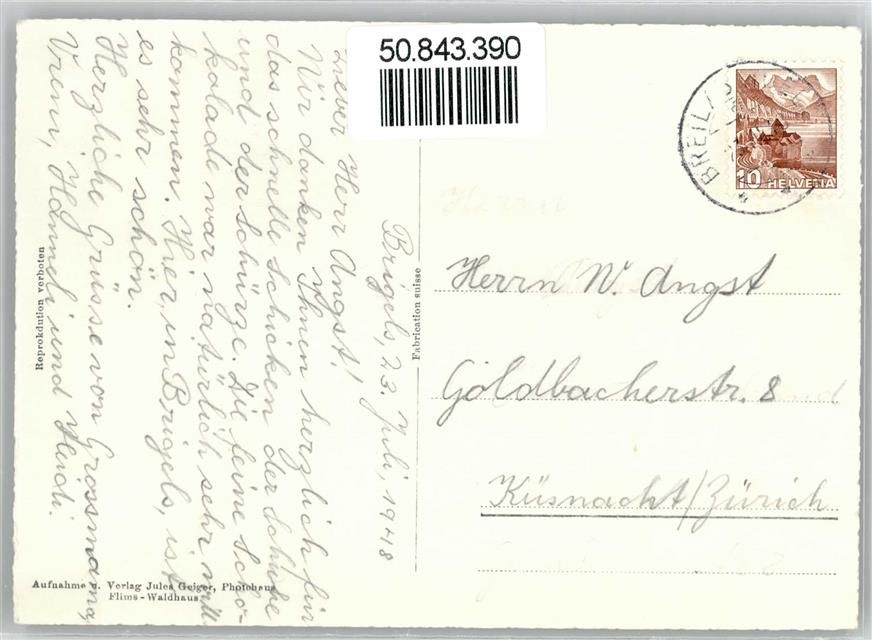 50.843.390
BREIL/
10 HELVETIA
Brigels, 23. Juli, 1948
Lieber Herr Angst!
Wir danken Ihnen herzlich für
das schnelle Schicken der Schuhe
und der Schürze. Die feine Scho-
kolade war natürlich sehr will-
kommen. Hier, in Brigels, ist
es sehr schön.
Herzliche Grüsse von Grossmama,
Vreni, Hanneli und Heidi.
Reproduktion verboten
Fabrication suisse
Herrn W. Angst
Goldbacherstr. 8
Küsnacht/Zürich
Aufnahme u. Verlag Jules Geiger, Photohaus
Flims - Waldhaus